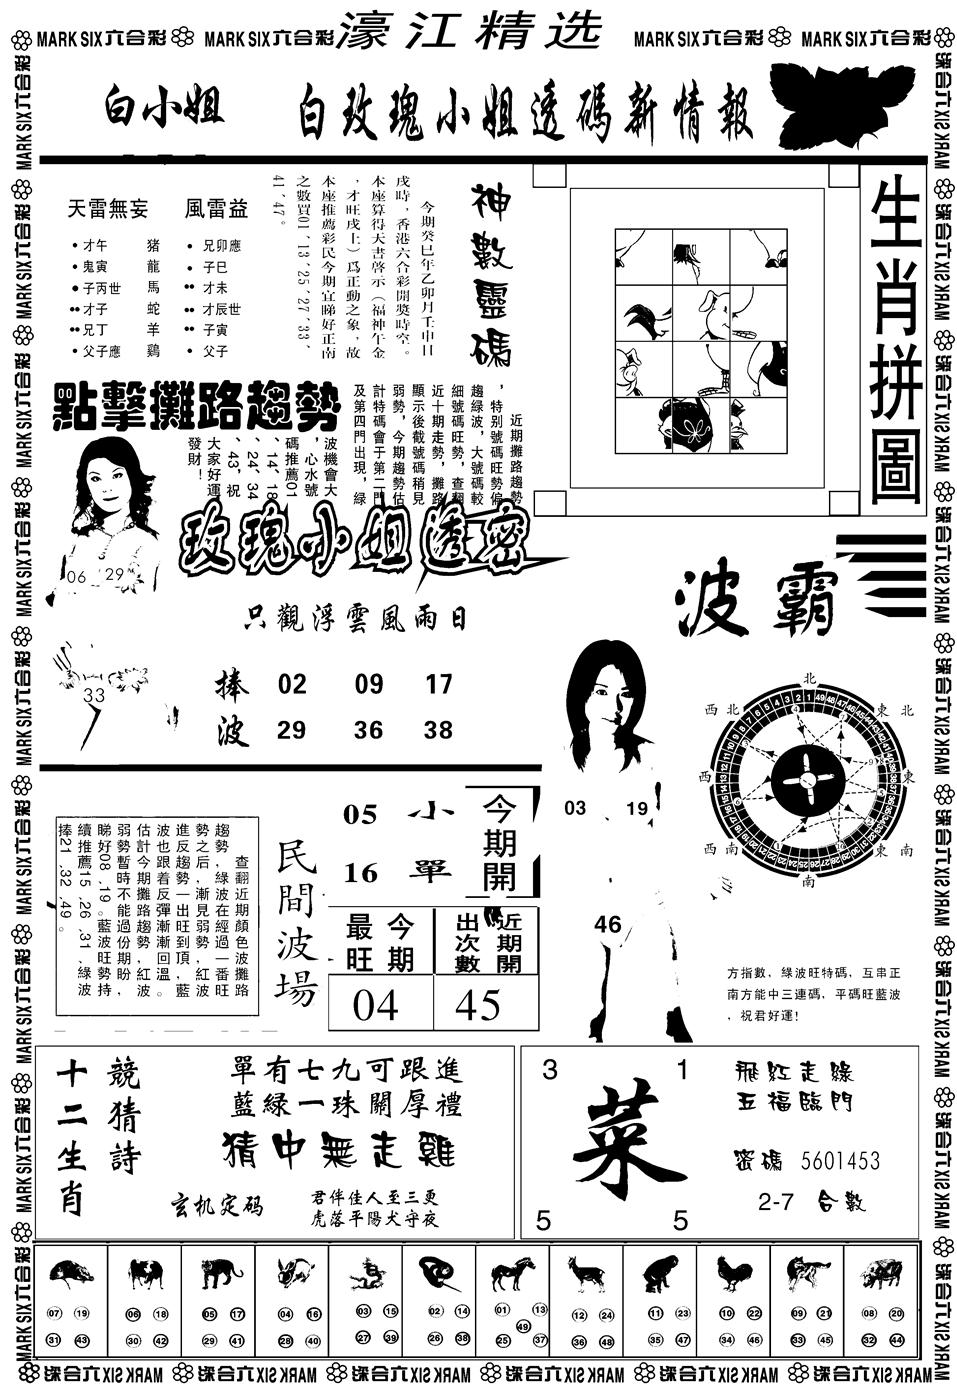 MARK SIX六合彩 MARK SIX六合彩 濠江精选 MARK SIX六合彩 MARK SIX六合彩
白小姐 白玫瑰小姐透碼新情報
生肖拼圖
神數靈碼
今期癸巳年乙卯月壬申日
戌時，香港六合彩開獎時空。
本座算得天書啓示（福神午金
，才旺戌上）爲正動之象，故
本座推薦彩民今期宜睇好正南
之數買01、13、25、27、33、
41、47。
天雷無妄 風雷益
才午 猪 兄卯應
鬼寅 龍 子巳
子丙世 馬 才未
才子 蛇 才辰世
兄丁 羊 子寅
父子應 鷄 父子
點擊攤路趨勢
近期攤路趨勢
，特别號碼旺勢偏
趨緑波，大號碼較
細號碼旺勢，查翻
近十期走勢，攤路
顯示後截號碼稍見
弱勢，今期趨勢估
計特碼會于第二門
及第四門出現，緑
波機會大
，心水號
碼推薦01
、14、18
、24、34
、43，祝
大家好運
發財！
06 29
33
玫瑰小姐透密
只觀浮雲風雨日
捧 02 09 17
波 29 36 38
波霸
北
西北 東北
西 東
西南 東南
南
03 19
46
方指數，緑波旺特碼，互串正
南方能中三連碼，平碼旺藍波
，祝君好運！
查翻近期顔色波攤路
趨勢，緑波在經過一番旺
勢之后，漸見弱勢，紅波
進反趨勢一出旺到頂，藍
波也跟着反彈漸漸回溫。
估計今期攤路趨勢，紅波
弱勢暫時不能過份期盼，
睇好08、19。藍波旺勢持
續推薦15、26、31，緑波
捧21、32、49。
民間波場
05 小
16 單
今期開
最旺 今期
出次數 近期開
04 45
十二生肖
競猜詩
單有七九可跟進
藍緑一珠關厚禮
猜中無走雞
玄机定码
君伴佳人至三更
虎落平陽犬守夜
3 1
菜
5 5
飛紅走緑
五福臨門
密碼 5601453
2-7 合數
07 19 06 18 05 17 04 16 03 15 02 14 01 13 12 24 11 23 10 22 09 21 08 20
49
31 43 30 42 29 41 28 40 27 39 26 38 25 37 36 48 35 47 34 46 33 45 32 44
MARK SIX六合彩 MARK SIX六合彩 MARK SIX六合彩 MARK SIX六合彩 MARK SIX六合彩